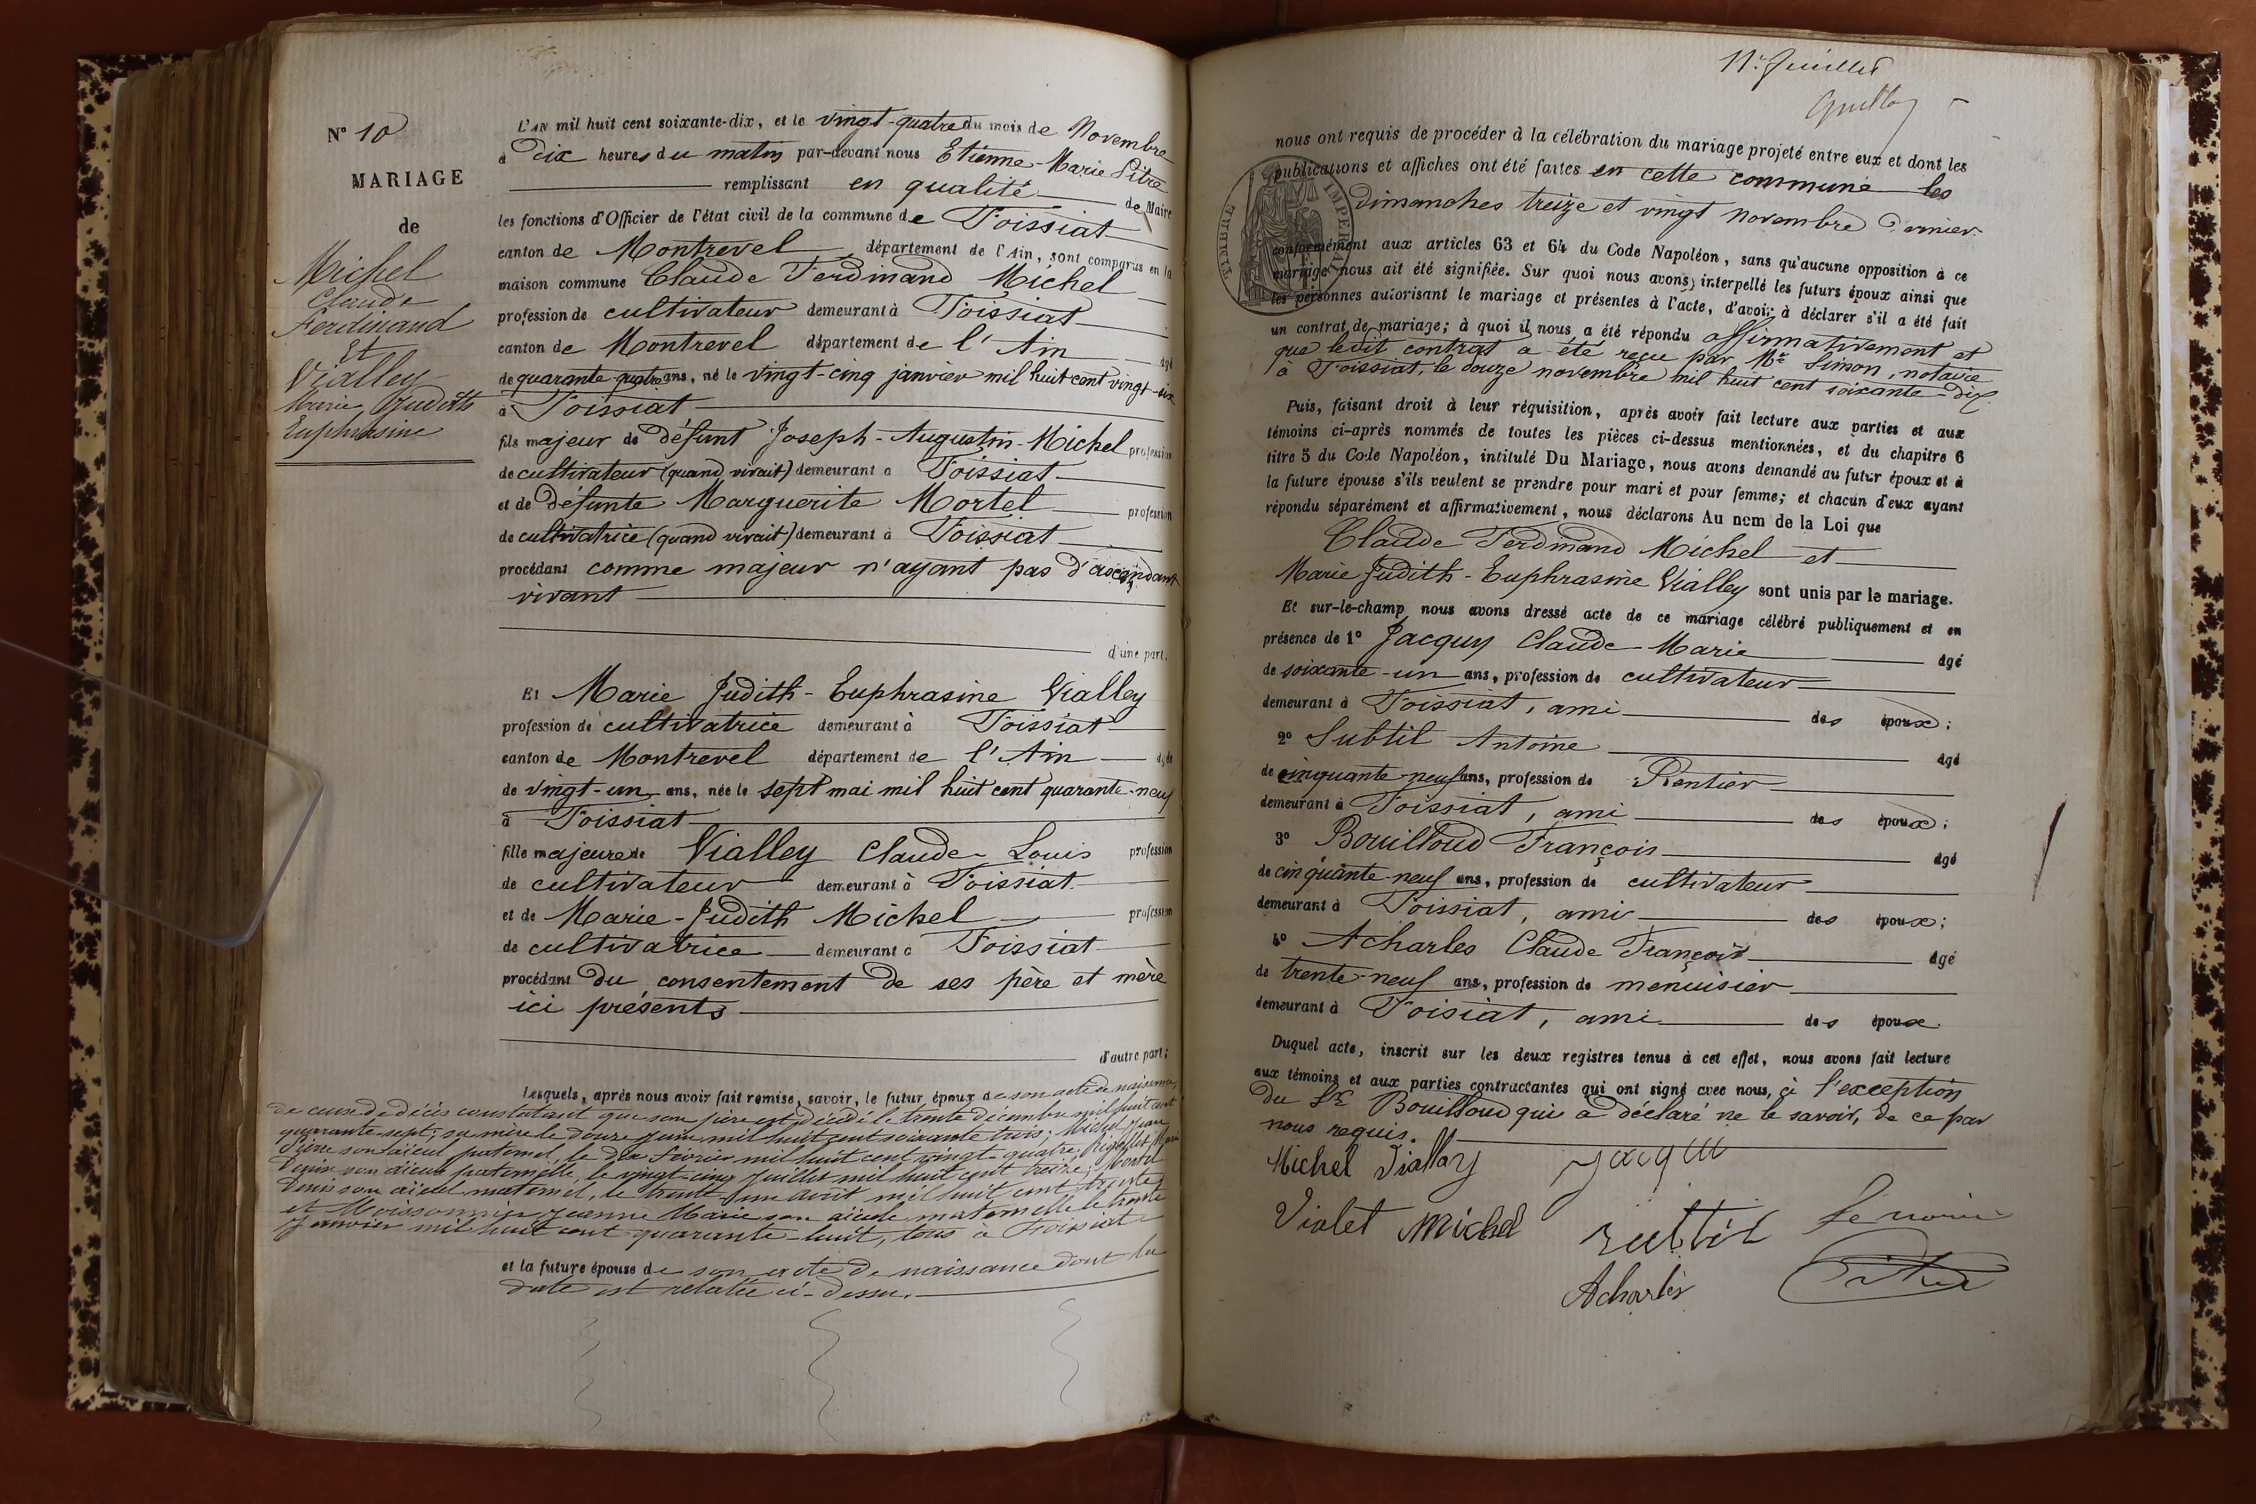 N° 10
MARIAGE
de
Michel
Claude
Ferdinand
Et
Vialley
Marie Judith
Euphrasine
L'AN mil huit cent soixante-dix, et le vingt-quatre du mois de Novembre
à dix heures du matin par-devant nous Etienne-Marie Pitre
remplissant en qualité de Maire
les fonctions d'Officier de l'état civil de la commune de Foissiat
canton de Montrevel, département de l'Ain, sont comparus en la
maison commune Claude Ferdinand Michel
profession de cultivateur demeurant à Foissiat
canton de Montrevel département de l'Ain âgé
de quarante quatre ans, né le vingt-cinq janvier mil huit cent vingt-six
à Foissiat
fils majeur de défunt Joseph-Augustin-Michel profession
de cultivateur (quand vivait) demeurant à Foissiat
et de défunte Marguerite Mortel profession
de cultivatrice (quand vivait) demeurant à Foissiat
procédant comme majeur n'ayant pas d'ascendant
vivant
d'une part.
Et Marie Judith-Euphrasine Vialley
profession de cultivatrice demeurant à Foissiat
canton de Montrevel département de l'Ain âgée
de vingt-un ans, née le sept mai mil huit cent quarante-neuf
à Foissiat
fille majeure de Vialley Claude-Louis profession
de cultivateur demeurant à Foissiat
et de Marie-Judith Michel profession
de cultivatrice demeurant à Foissiat
procédant du consentement de ses père et mère
ici présents
d'autre part;
Lesquels, après nous avoir fait remise, savoir, le futur époux de son acte de naissance,
de ceux de décès constatant que son père est décédé le trente décembre mil huit cent
quarante-sept; sa mère le douze juin mil huit cent soixante trois; Michel Jean
Pierre son aïeul paternel, le dix février mil huit cent vingt quatre; Marie
son aïeule paternelle, le vingt-cinq juillet mil huit cent treize; Mortel
Denis son aïeul maternel, le trente-un avril mil huit cent trente;
et Moissonnier Jeanne Marie son aïeule maternelle le trente
janvier mil huit cent quarante-huit, tous à Foissiat
et la future épouse de son acte de naissance dont la
date est relatée ci-dessus.
11e feuillet
nous ont requis de procéder à la célébration du mariage projeté entre eux et dont les
publications et affiches ont été faites en cette commune les
dimanches treize et vingt novembre dernier
conformément aux articles 63 et 64 du Code Napoléon, sans qu'aucune opposition à ce
mariage nous ait été signifiée. Sur quoi nous avons interpellé les futurs époux ainsi que
les personnes autorisant le mariage et présentes à l'acte, d'avoir à déclarer s'il a été fait
un contrat de mariage; à quoi il nous a été répondu affirmativement et
que ledit contrat a été reçu par Me Simon, notaire
à Foissiat, le douze novembre mil huit cent soixante-dix
TIMBRE IMPERIAL
Puis, faisant droit à leur réquisition, après avoir fait lecture aux parties et aux
témoins ci-après nommés de toutes les pièces ci-dessus mentionnées, et du chapitre 6
titre 5 du Code Napoléon, intitulé Du Mariage, nous avons demandé au futur époux et à
la future épouse s'ils veulent se prendre pour mari et pour femme; et chacun d'eux ayant
répondu séparément et affirmativement, nous déclarons Au nom de la Loi que
Claude Ferdinand Michel et
Marie Judith-Euphrasine Vialley sont unis par le mariage.
Et sur-le-champ nous avons dressé acte de ce mariage célébré publiquement et en
présence de 1° Jacquy Claude-Marie âgé
de soixante-un ans, profession de cultivateur
demeurant à Foissiat, ami des époux;
2° Subtil Antoine âgé
de cinquante-neuf ans, profession de Rentier
demeurant à Foissiat, ami des époux;
3° Bouilloud François âgé
de cinquante-neuf ans, profession de cultivateur
demeurant à Foissiat, ami des époux;
4° Acharles Claude François âgé
de trente-neuf ans, profession de menuisier
demeurant à Foisiat, ami des époux.
Duquel acte, inscrit sur les deux registres tenus à cet effet, nous avons fait lecture
aux témoins et aux parties contractantes qui ont signé avec nous, à l'exception
du Sr Bouilloud qui a déclaré ne le savoir, de ce par
nous requis.
Michel Viallay Jacqui
Violet Michel Subtil Le maire
Acharles Pitre